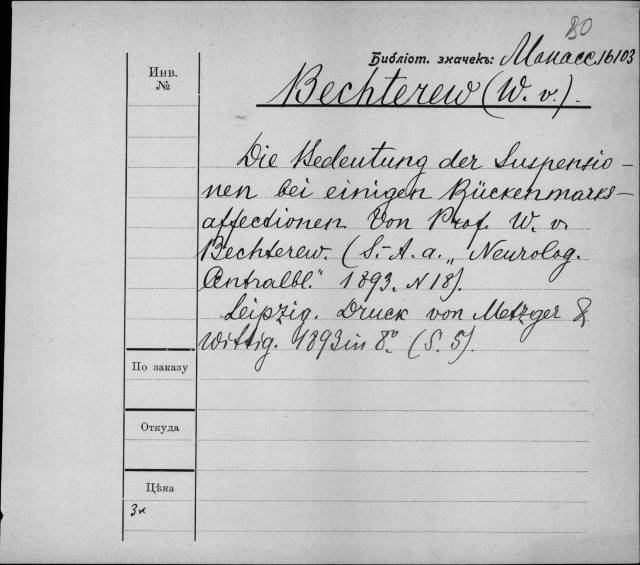 80
Библіот. значекъ: Манасс. 16103
Инв. №
Bechterew (W. v.).
Die Bedeutung der Suspensio-
nen bei einigen Rückenmarks-
affectionen. Von Prof. W. v.
Bechterew. (S.-A. a. „Neurolog.
Centralbl." 1893. N 18).
Leipzig. Druck von Metzger &
Wittig. 1893 in 8°. (S. 5).
По заказу
Откуда
Цѣна
3к